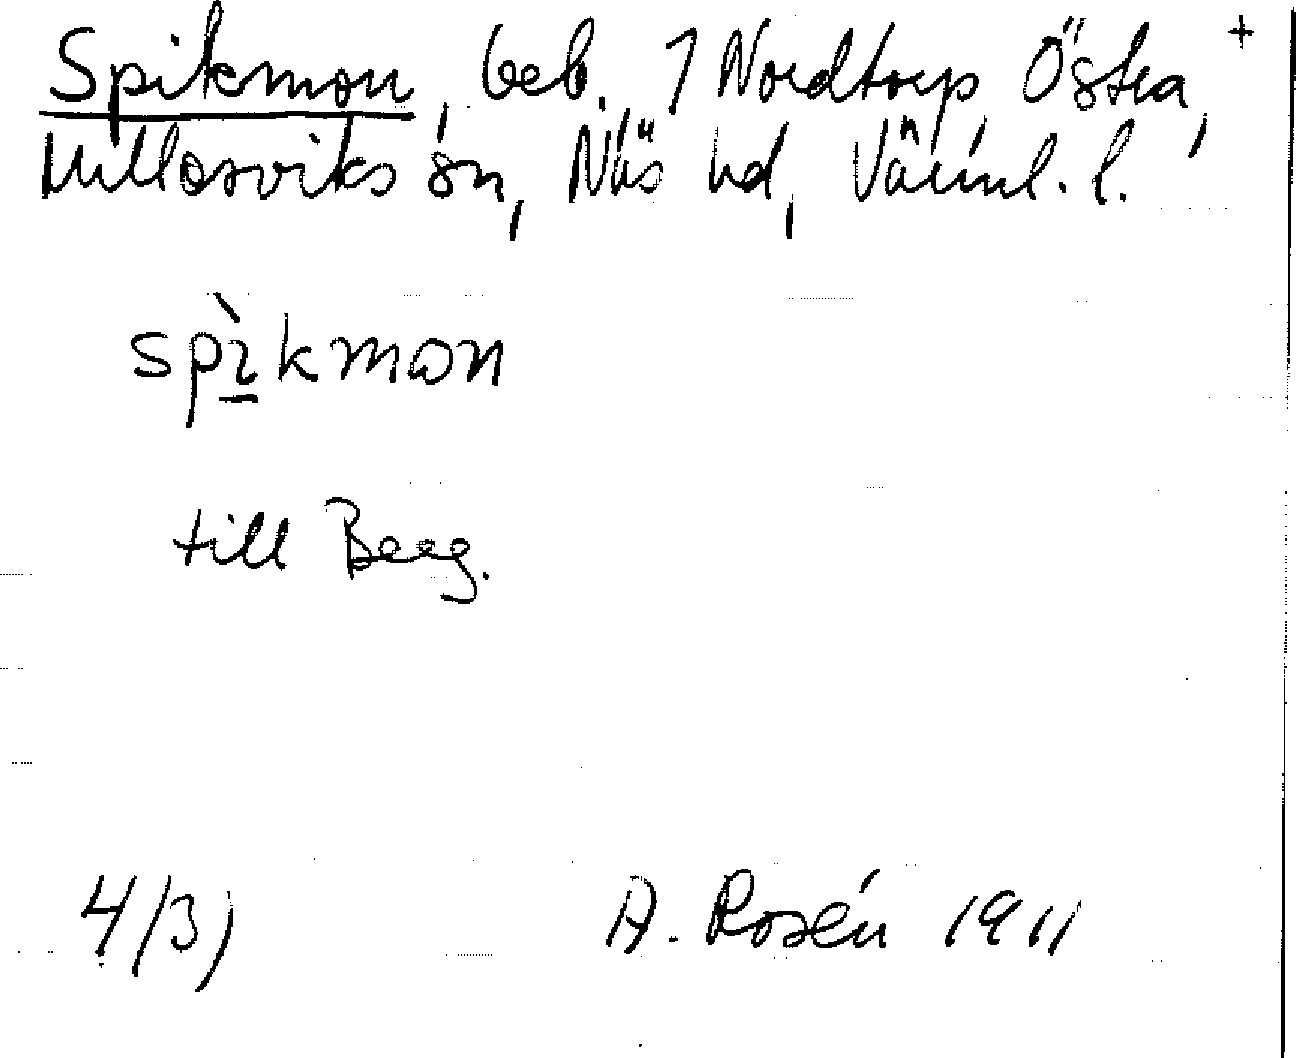 Spikmon, beb. 1 Nordtorp Östra, +
Millesviks sn, Näs hd, Värml. l.
spìkmon
till Berg.
4/3) A. Rosén 1911